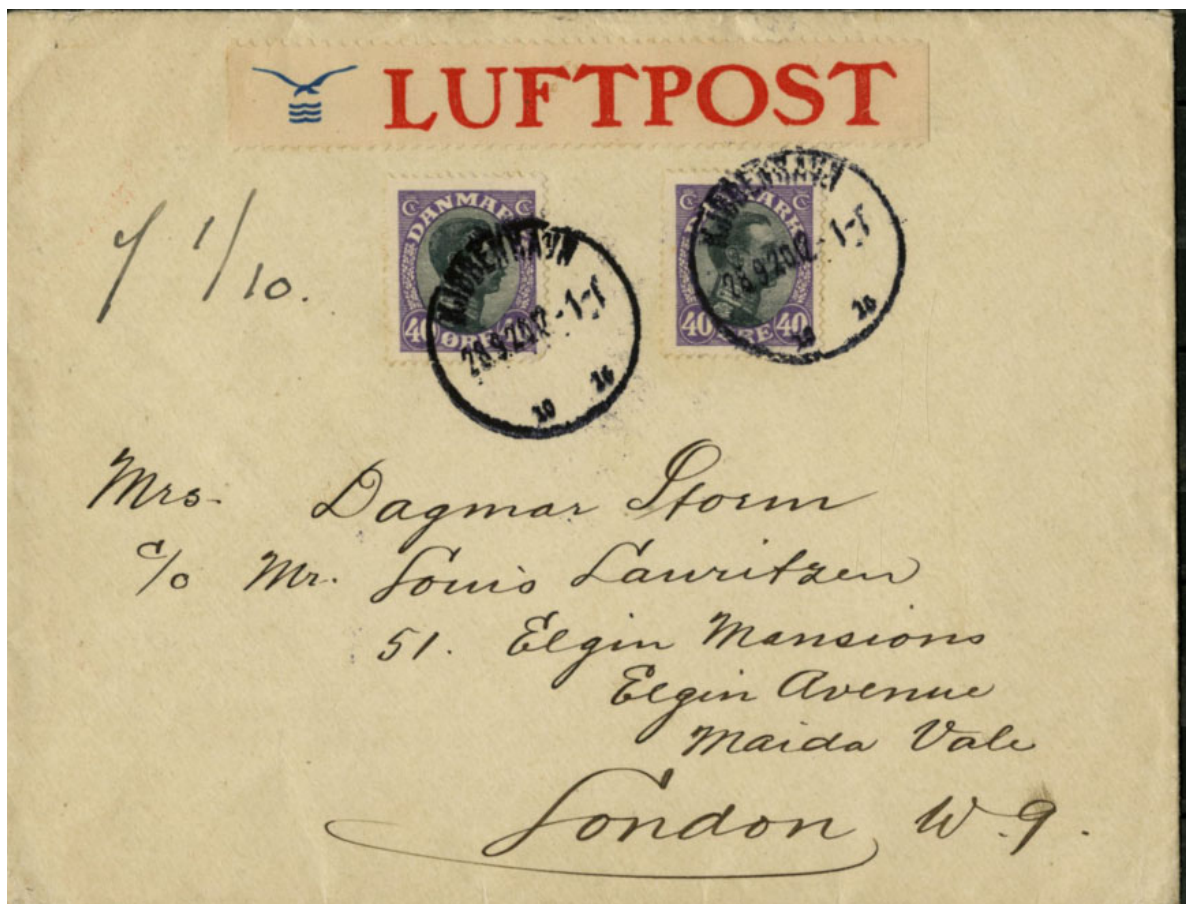 LUFTPOST
1/10.
DANMARK
40 ØRE
KJØBENHAVN
28.9.20.12-1-F
DANMARK
40 ØRE 40
KJØBENHAVN
28.9.20.12-1-F
Mrs. Dagmar Storm
c/o Mr. Louis Lauritzen
51. Elgin Mansions
Elgin Avenue
Maida Vale
London W. 9.